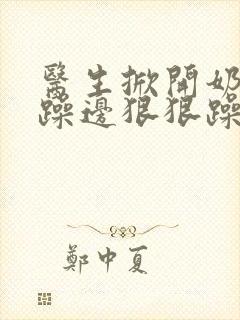 醫生掀開奶
躁邊狠狠躁
鄭中夏